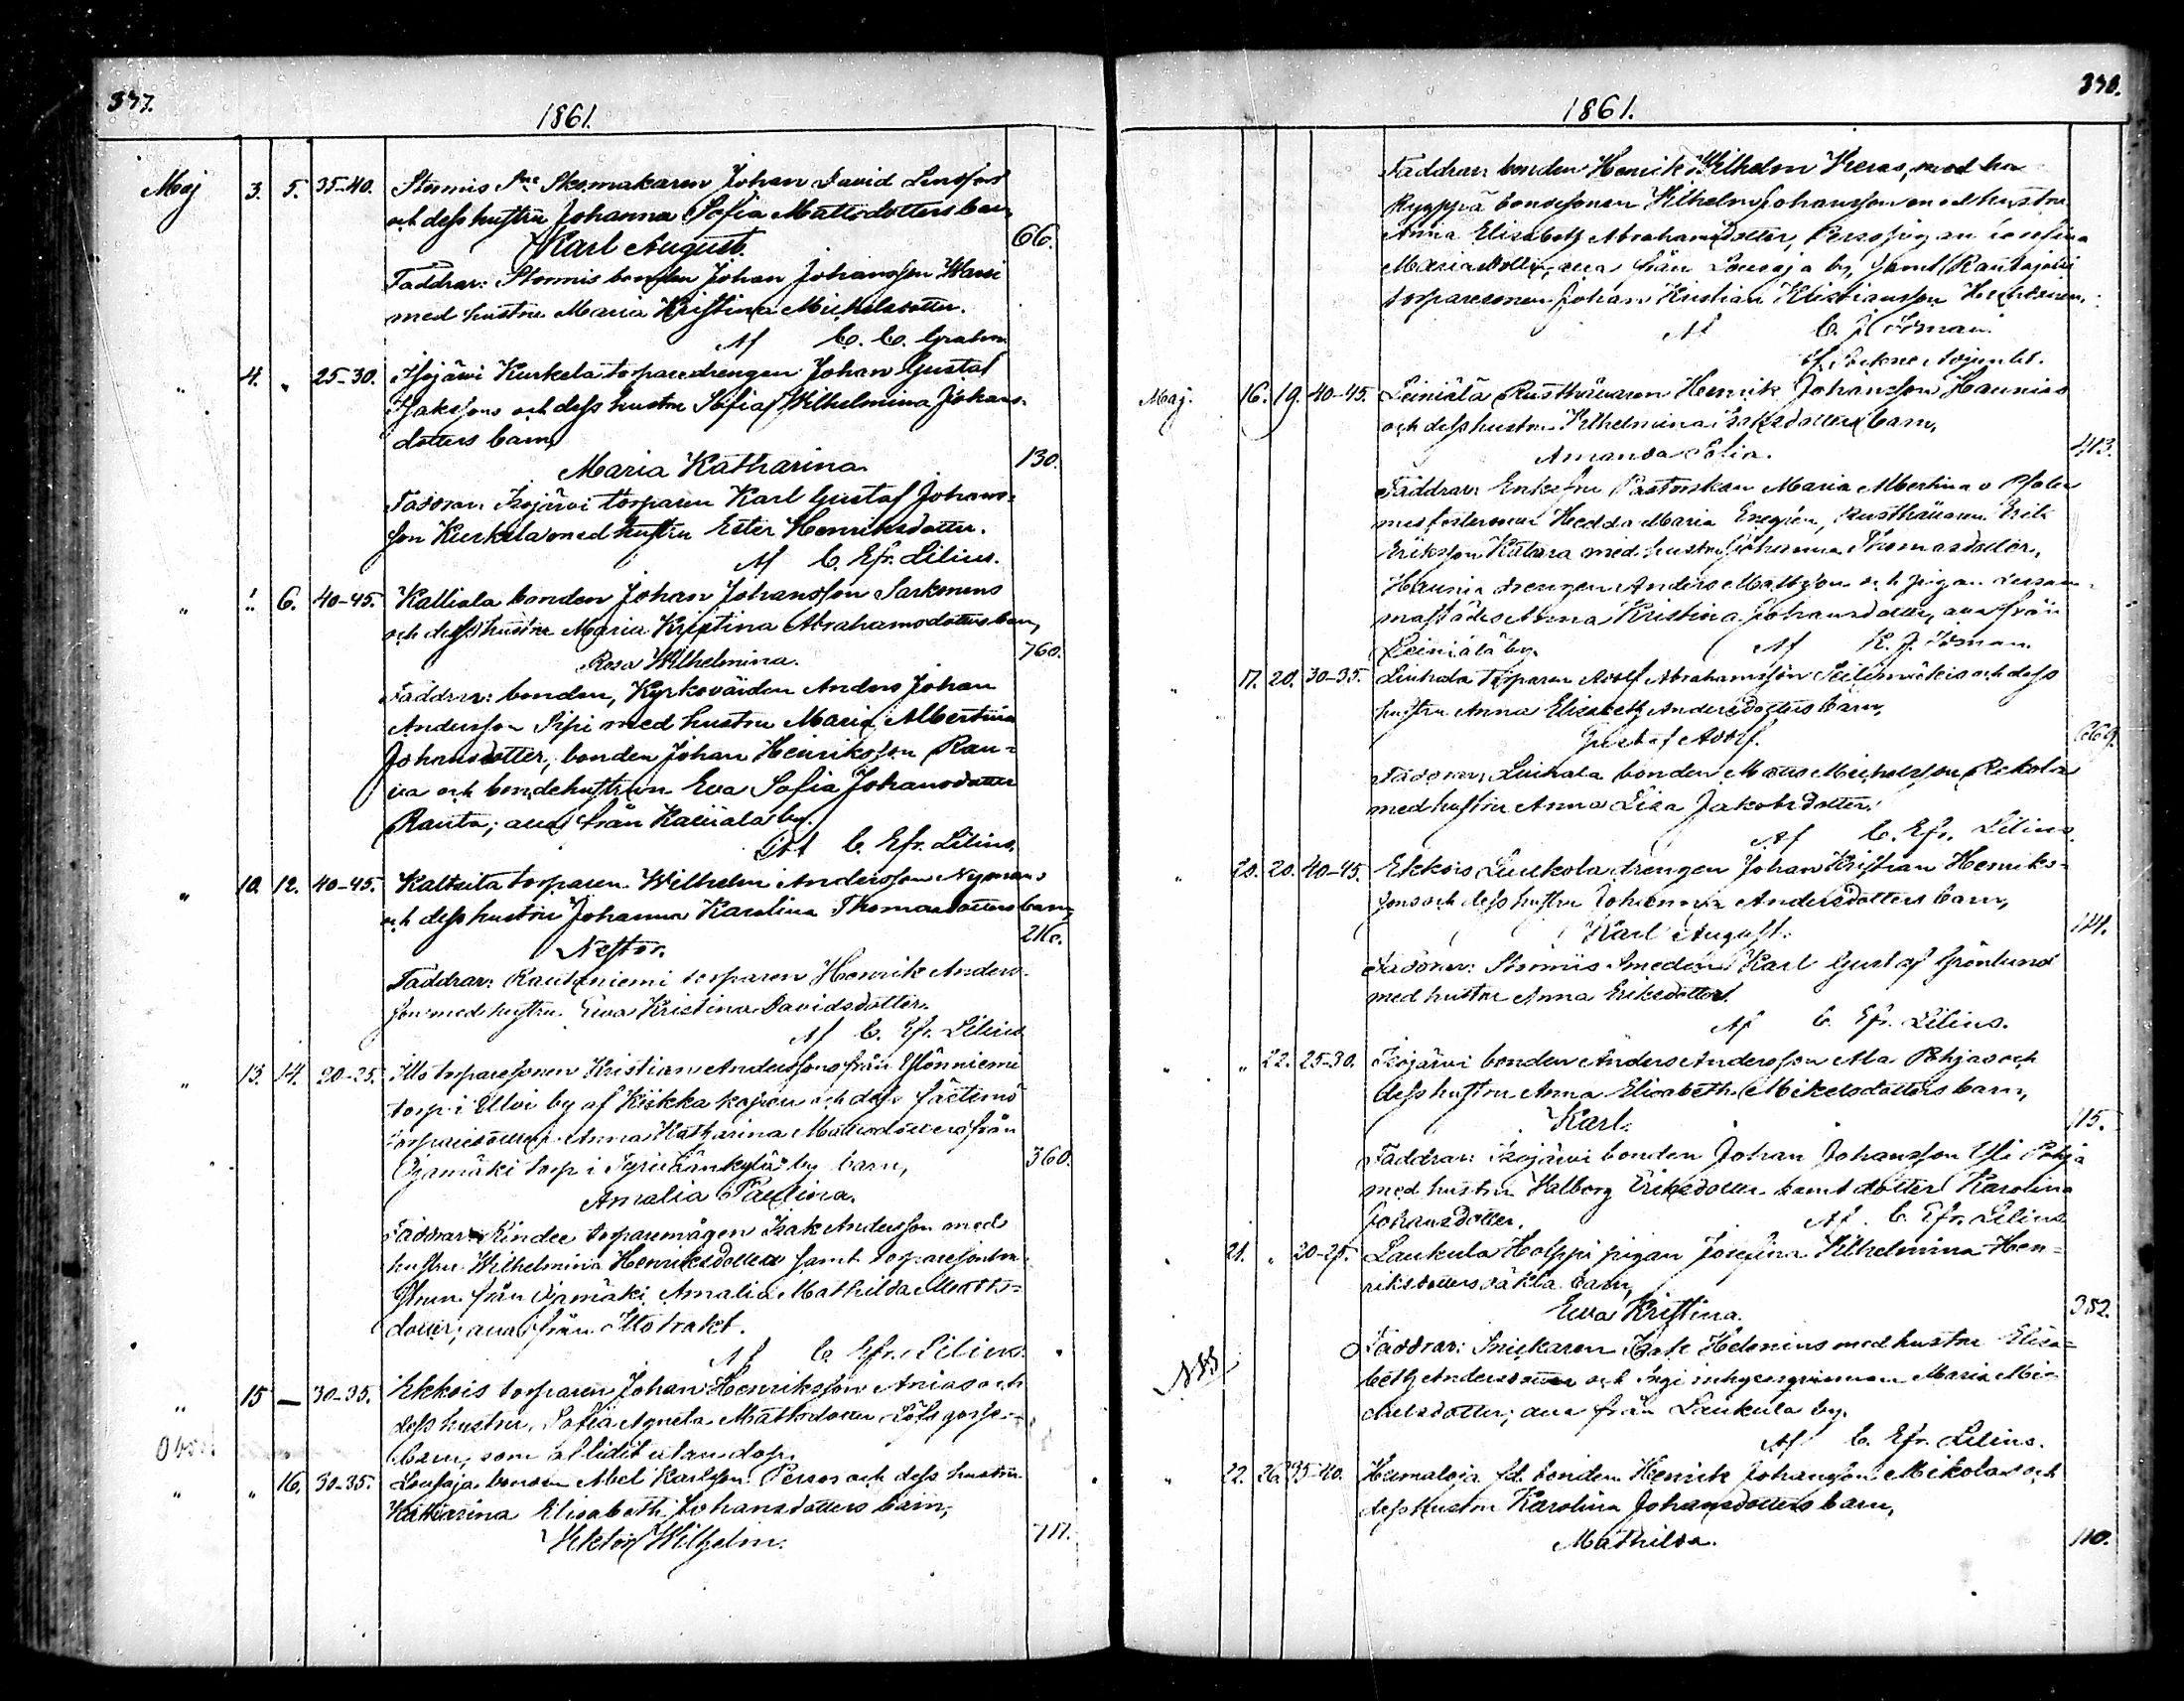 377.
1861.
Maj 3. 5. 35-40. Stormis Skomakaren Johan David
och dess hustru Johanna Sofia Mattsdotters barn,
Karl August. 66.
Faddrar: Stormis bonden Johan Johansson
med hustru Maria Kristina Michelsdotter.
Af C. C. Grahn
" 4. " 25-30. Isojärvi Kurkela torparedrengen Johan Gustaf
Isakssons och dess hustru Sofia Wilhelmina Johans-
dotters barn,
Maria Katharina. 130.
Faddrar: Isojärvi torparen Karl Gustaf Johans-
son Kurkela med hustru Ester Henriksdotter.
Af C. Efr. Lilius.
" " 6. 40-45. Kalliala bonden Johan Johansson Sarkonens
och dess hustru Maria Kristina Abrahamsdotters barn,
Rosa Wilhelmina. 760.
Faddrar: bonden, Kyrkovärden Anders Johan
Andersson Pipi med hustru Maria Albertina
Johansdotter, bonden Johan Henriksson Rau-
och bondehustrun Eva Sofia Johansdotter
Ranta; alla från by.
Af C. Efr. Lilius.
" 10. 12. 40-45. Kaltsila torparen Wilhelm Andersson Nymans
och dess hustru Johanna Karolina Thomasdotters barn,
Nestor. 216.
Faddrar: Rautaniemi torparen Henrik Anders-
son med hustru Eva Kristina Davidsdotter.
Af C. Efr. Lilius
" 13. 14. 20-25. Illo torparesonen Kristian Anderssons från
torp i Illoi by af Kiikka kapell och dess fästemö
torparedottren Anna Katharina Mattsdotters från
Ojamäki torp i by barn, 360.
Amalia Paulina.
Faddrar: Rindee torparemågen Isak Andersson med
hustru Wilhelmina Henriksdotter samt torparesonhu-
strun från Ojamäki Amalia Mathilda Matts-
dotter; alla från Illo trakt.
Af C. Efr. Lilius.
" 15 — 30-35. Ekkois torparen Johan Henriksson Anias och
dess hustru, Sofia Agneta Mattsdotters gosse-
barn, som aflidit utan dop.
Obs.
" " 16. 30-35. Loupaja bonden Abel Karlsson Persos och dess hustru
Katharina Elisabeth Johansdotters barn,
Viktor Wilhelm. 717.
378.
1861.
Faddrar: bonden Henrik Wilhelm Keras, med hu
bondesonen Wilhelm Johansson med hustru
Anna Elisabeth Abrahamsdotter, Perso pigan Josefina
Maria alla från Loupaja by, samt Rautajoki
torparesonen Johan Kristian Kristiansson
Af C. J. Isman.
Maj. 16. 19. 40-45. Leiniälä Rusthållaren Henrik Johansson Haunias
och dess hustru Wilhelmina Isaksdotters barn,
Amanda Sofia. 413.
Faddrar: Enkefru Pastorskan Maria Albertina v Pfaler
med Hedda Maria Enegren, Rusthållaren Erik
Eriksson Katara med hustru Johanna Thomasdotter,
Haunia drengen Anders Mattsson och pigan dersam-
mastädes Anna Kristina Johansdotter, alla från
Leiniälä by. Af K. J. Isman.
" 17. 20. 30-35. Liuhala torparen Adolf Abrahamsson och dess
hustru Anna Elisabeth Andersdotters barn,
Gustaf Adolf. 669.
Faddrar: Liuhala bonden Matts Michelsson Rekola
med hustru Anna Lisa Jakobsdotter.
Af C. Efr. Lilius.
" 20. 20. 40-45. Ekkois Luukola drengen Johan Kristian Henriks-
sons och dess hustru Johanna Andersdotters barn,
Karl August. 141.
Faddrar: Stormis Smeden Karl Gustaf Grönlund
med hustru Anna Eriksdotter.
Af C. Efr. Lilius.
" " 22. 25-30. Isojärvi bonden Anders Andersson Ala Pohjas och
dess hustru Anna Elisabeth Mikelsdotters barn,
Karl. 115.
Faddrar: Isojärvi bonden Johan Johansson Yli Pohja
med hustru Valborg Eriksdotter samt dotter Karolina
Johansdotter. Af C. Efr. Lilius
" 21. " 20-25. Laukula Holppi pigan Josefina Wilhelmina Hen-
riksdotters oäkta barn,
Eva Kristina. 352.
Faddrar: Snickaren Isak Helenius med hustru Elisa-
beth Andersdotter och inhysesqvinnan Maria Mi-
chelsdotter; alla från Laukula by.
Af C. Efr. Lilius.
" 22. 26. 35-40. Humaloja fd. bonden Henrik Johansson Mikolas och
dess hustru Karolina Johansdotters barn,
Mathilda. 110.